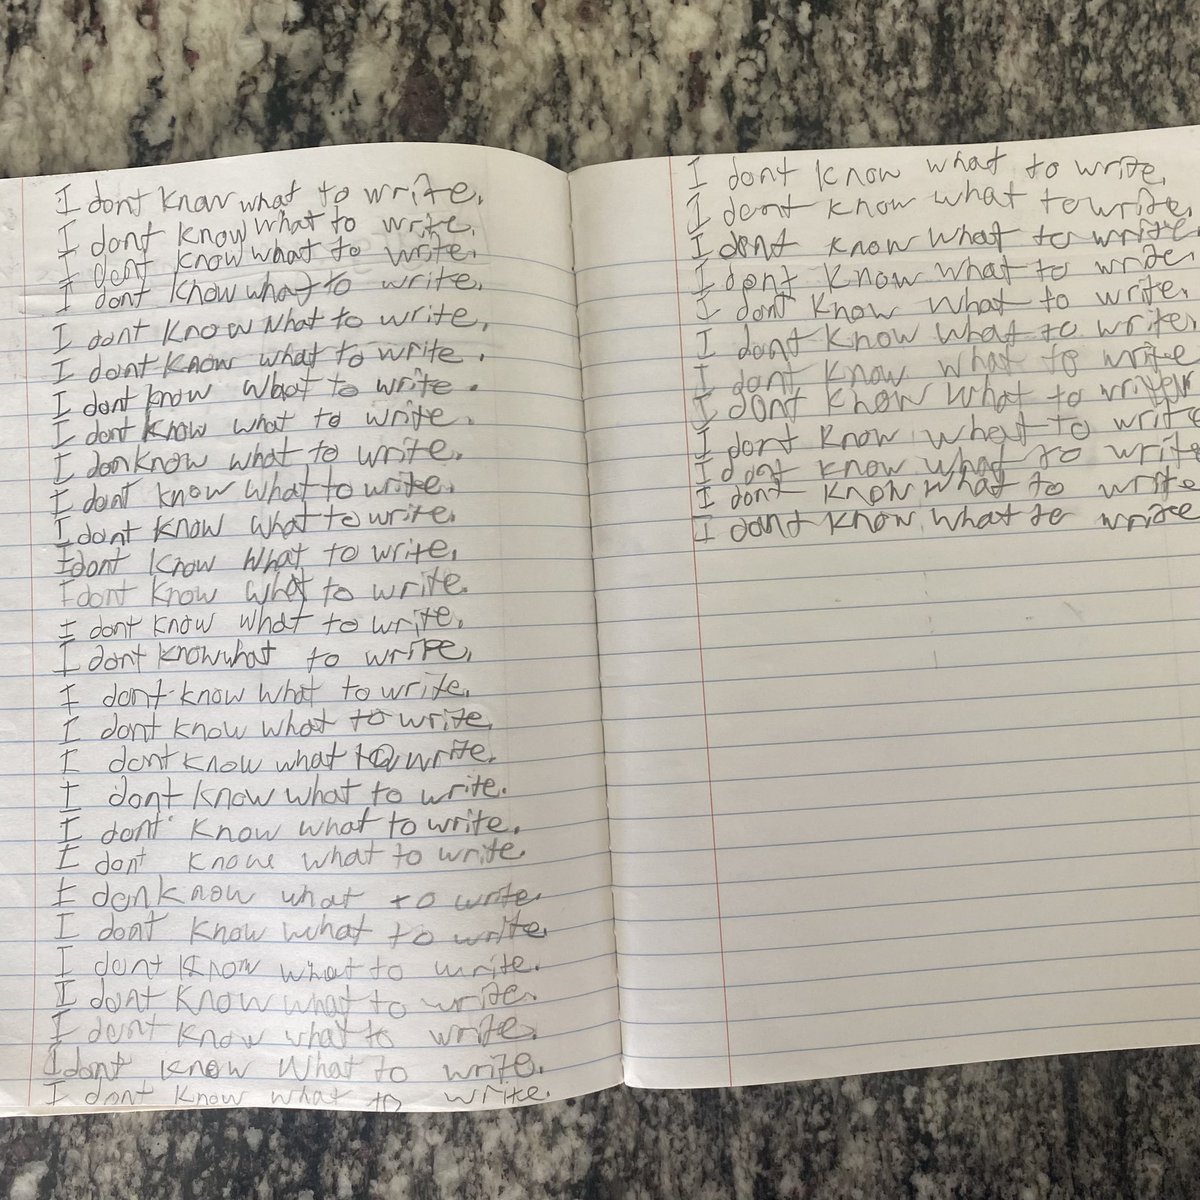 I dont know what to write.
I dont know what to write.
I dont know what to write.
I dont know what to write.
I dont know what to write.
I dont know what to write.
I dont know what to write.
I dont know what to write.
I donknow what to write.
I dont know what to write.
I dont know what to write.
I dont know what to write.
I dont know what to write.
I dont know what to write.
I dont know what to write.
I dont know what to write.
I dont know what to write.
I dont know what to write.
I dont know what to write.
I dont know what to write.
I dont know what to write
I donknow what to write.
I dont know what to write.
I dont know what to write.
I dont know what to write.
I dont know what to write.
I dont know What to write.
I dont know what to write.
I dont know what to write.
I dont know what to write.
I dont know what to write.
I dont know what to write.
I dont know what to write.
I dont know what to write.
I dont know what to write
I dont know what to
I dont know what to write
I dont know what to write
I dont know what to write
I dont know what to write